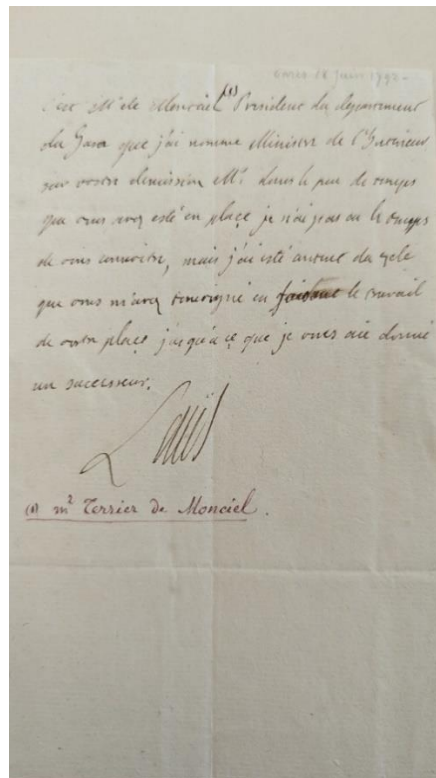 18 juin 1792
C'est Mr de Monciel (1) President du departement
du Jura que j'ai nommé Ministre de l'Interieur
sur vostre demission Mr. dans le peu de temps
que vous avez esté en place je n'ai pas eu le temps
de vous connoitre, mais j'ai esté content du zele
que vous m'avez temoigné en faisant le travail
de vostre place jusqu'à ce que je vous aie donné
un successeur.
Louis
(1) mr Terrier de Monciel.